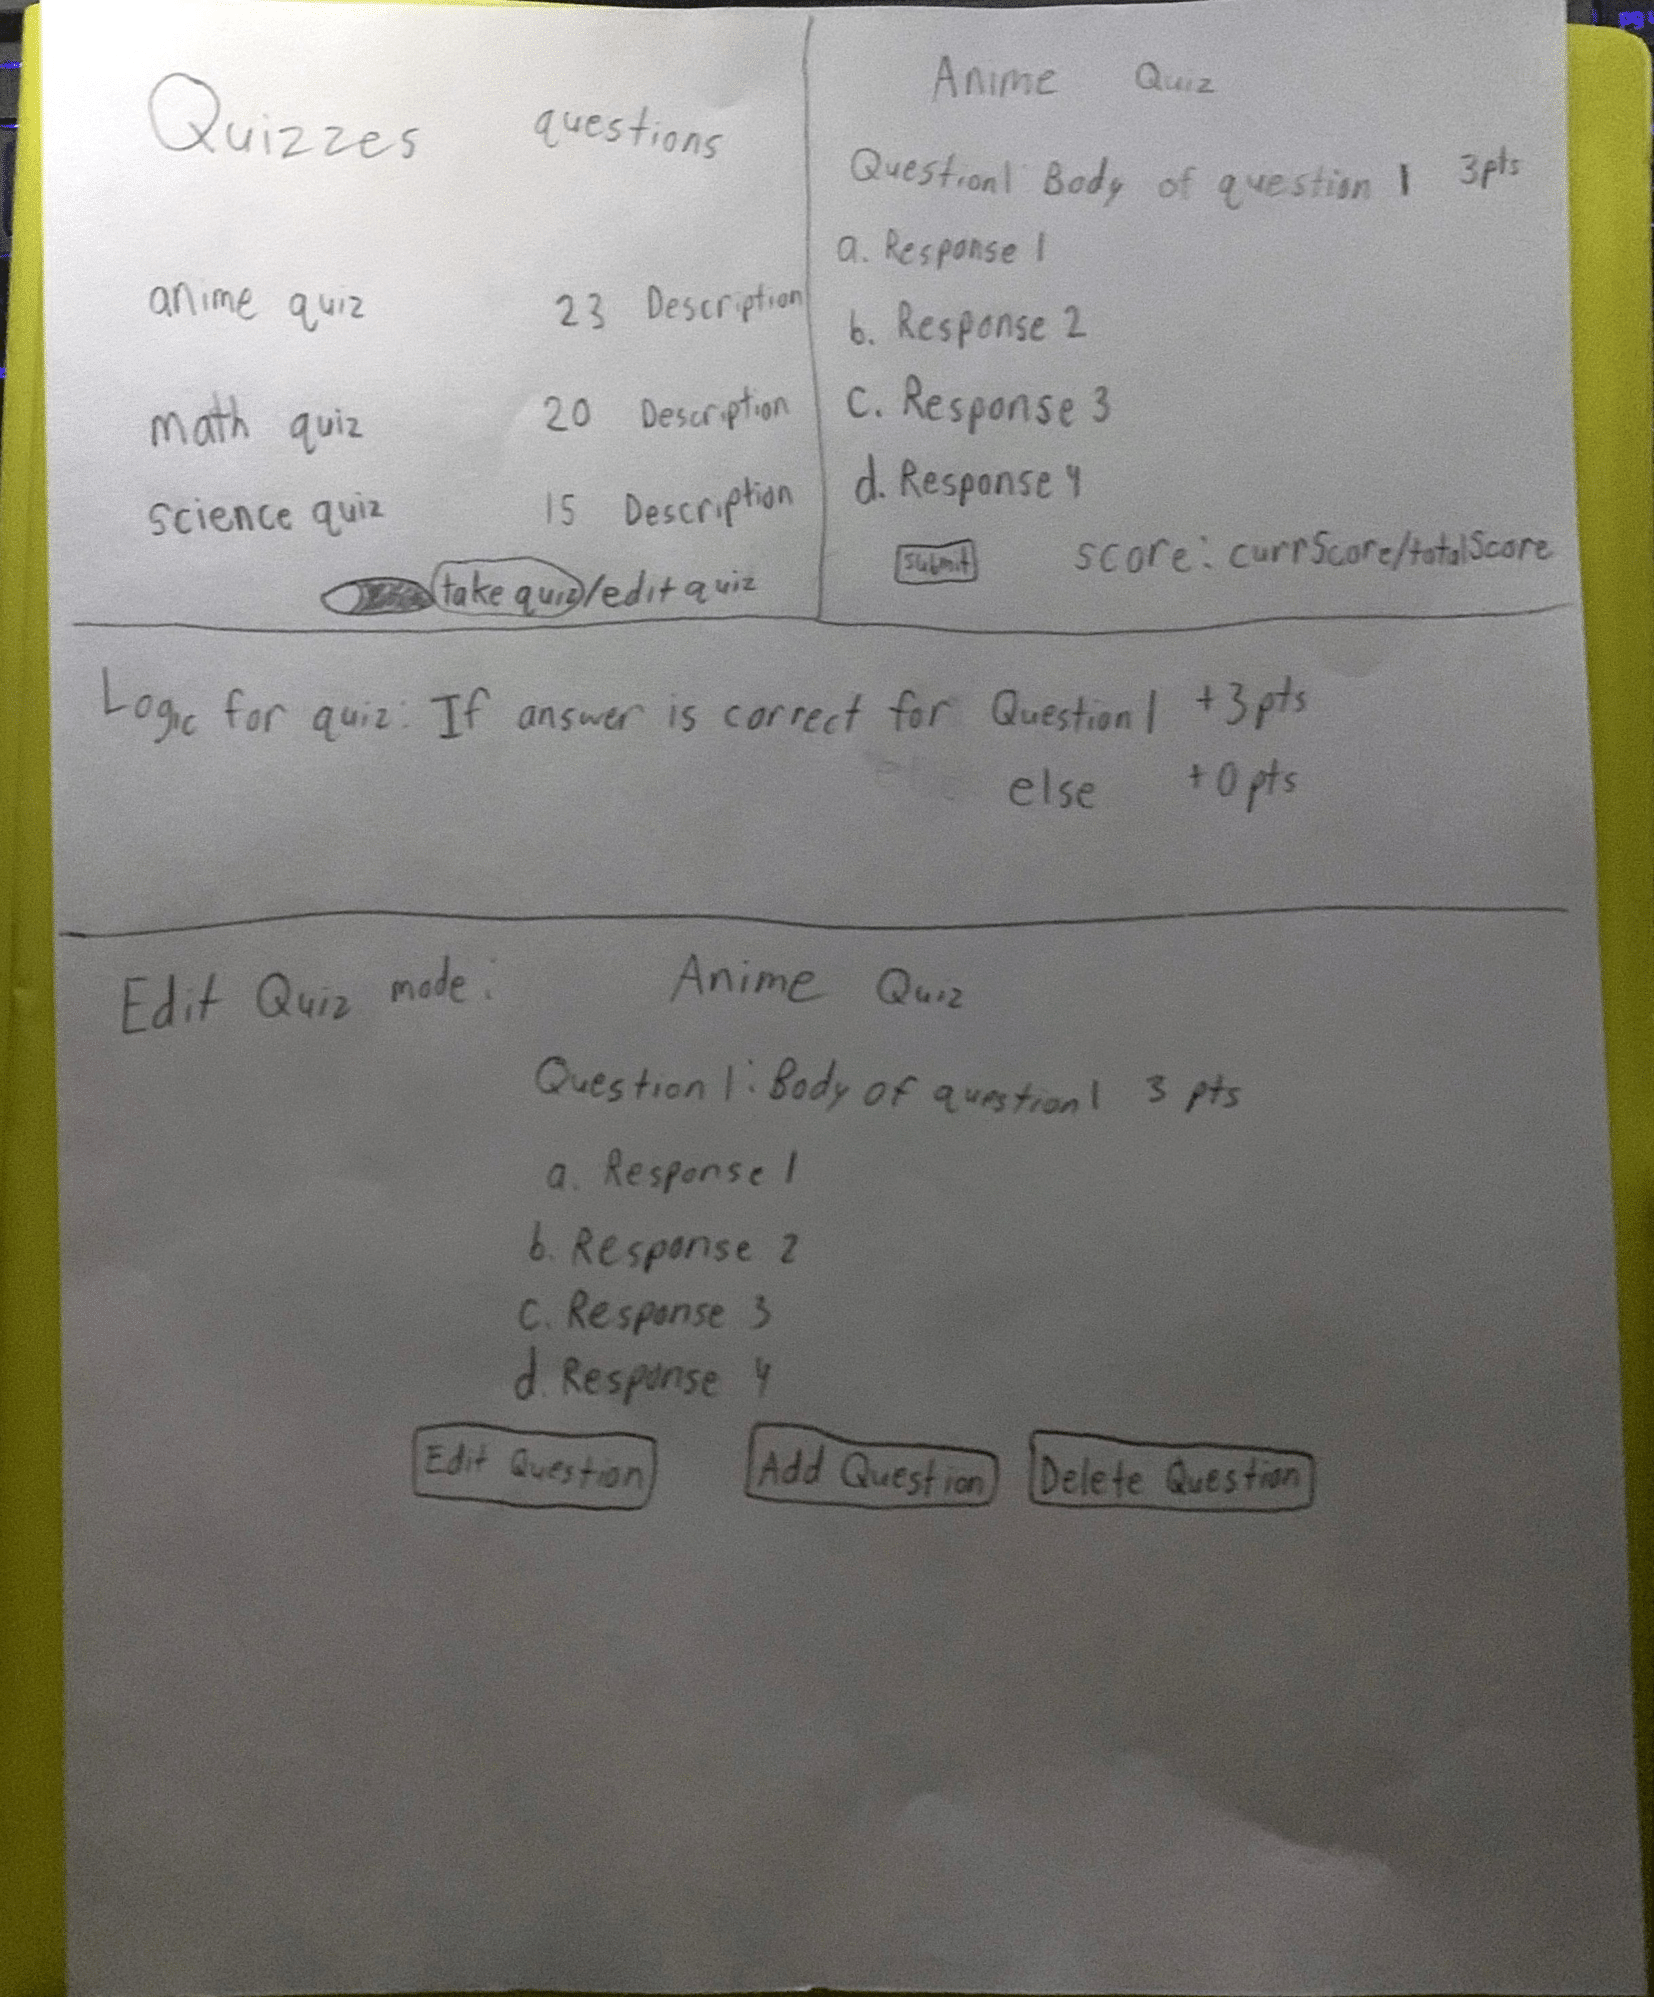 Quizzes questions
anime quiz 23 Description
math quiz 20 Description
science quiz 15 Description
take quiz/edit quiz
Anime Quiz
Question1 Body of question 1 3pts
a. Response 1
b. Response 2
c. Response 3
d. Response 4
Submit score: currScore/totalScore
Logic for quiz: If answer is correct for Question 1 +3pts
else +0pts
Edit Quiz mode: Anime Quiz
Question 1: Body of question 1 3 pts
a. Response 1
b. Response 2
c. Response 3
d. Response 4
Edit Question Add Question Delete Question